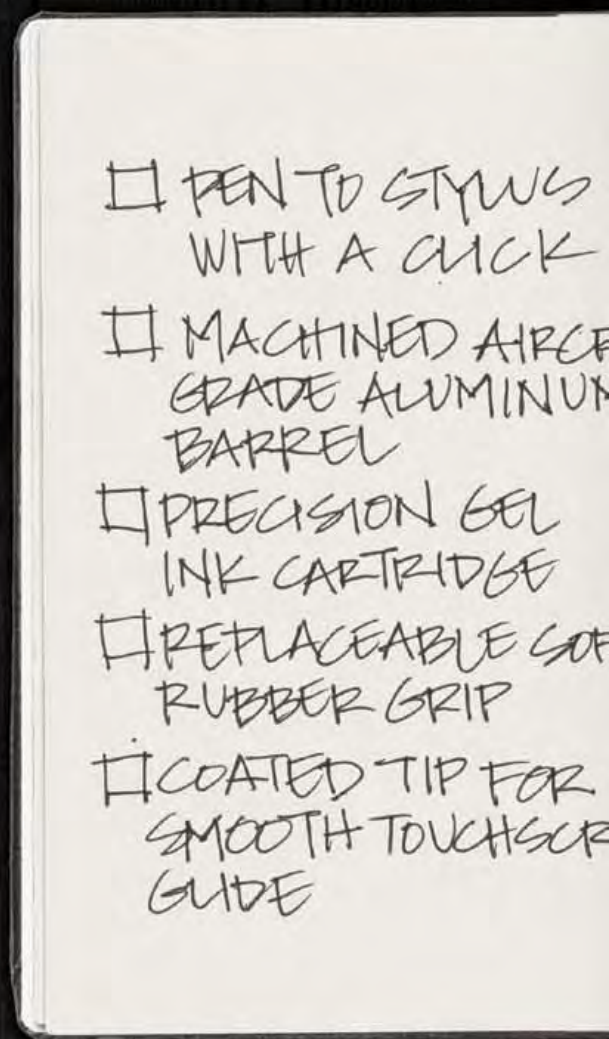 ☐ PEN TO STYLUS
WITH A CLICK
☐ MACHINED AIRCR
GRADE ALUMINUM
BARREL
☐ PRECISION GEL
INK CARTRIDGE
☐ REPLACEABLE SOF
RUBBER GRIP
☐ COATED TIP FOR
SMOOTH TOUCHSCR
GLIDE